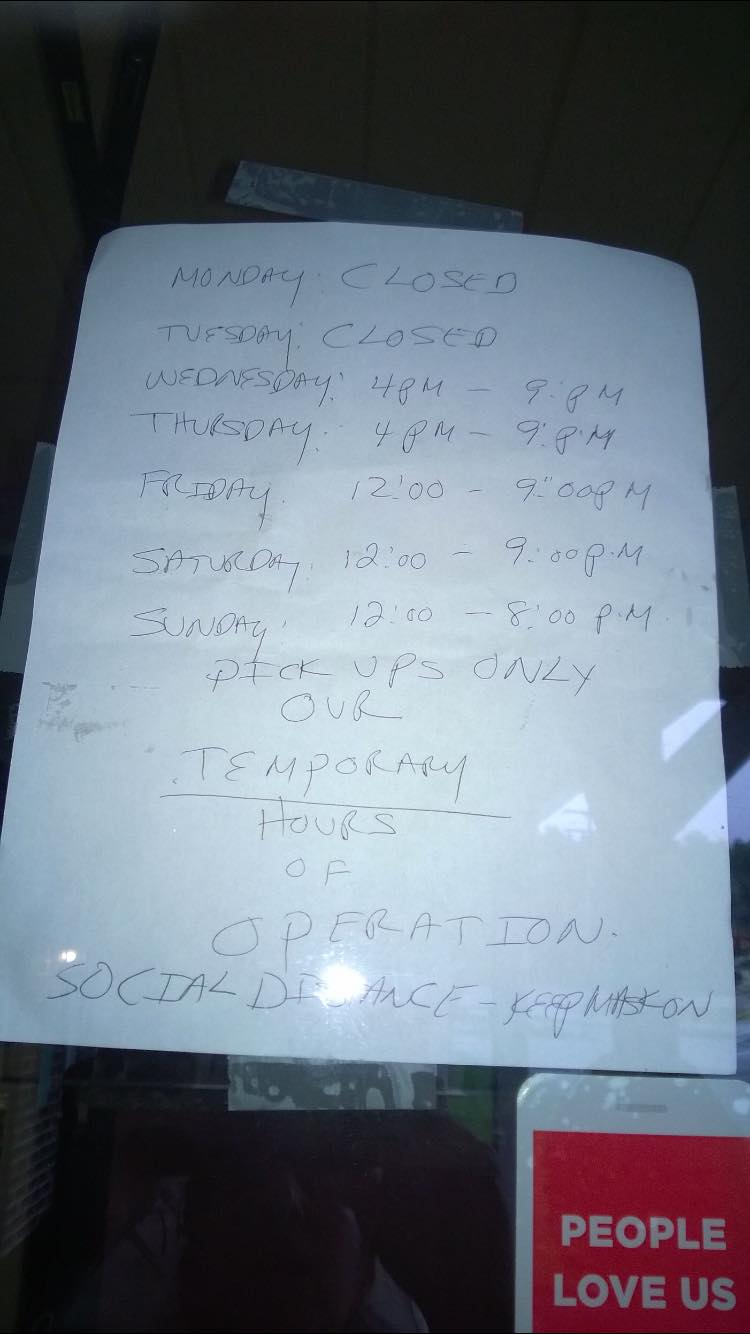 MONDAY: CLOSED
TUESDAY: CLOSED
WEDNESDAY: 4PM - 9:PM
THURSDAY: 4PM - 9:P.M
FRIDAY. 12:00 - 9:00PM
SATURDAY. 12:00 - 9:00P.M
SUNDAY: 12:00 - 8:00 P.M.
PICK UPS ONLY
OUR
TEMPORARY
HOURS
OF
OPERATION.
SOCIAL DISTANCE - KEEP MASK ON
PEOPLE
LOVE US